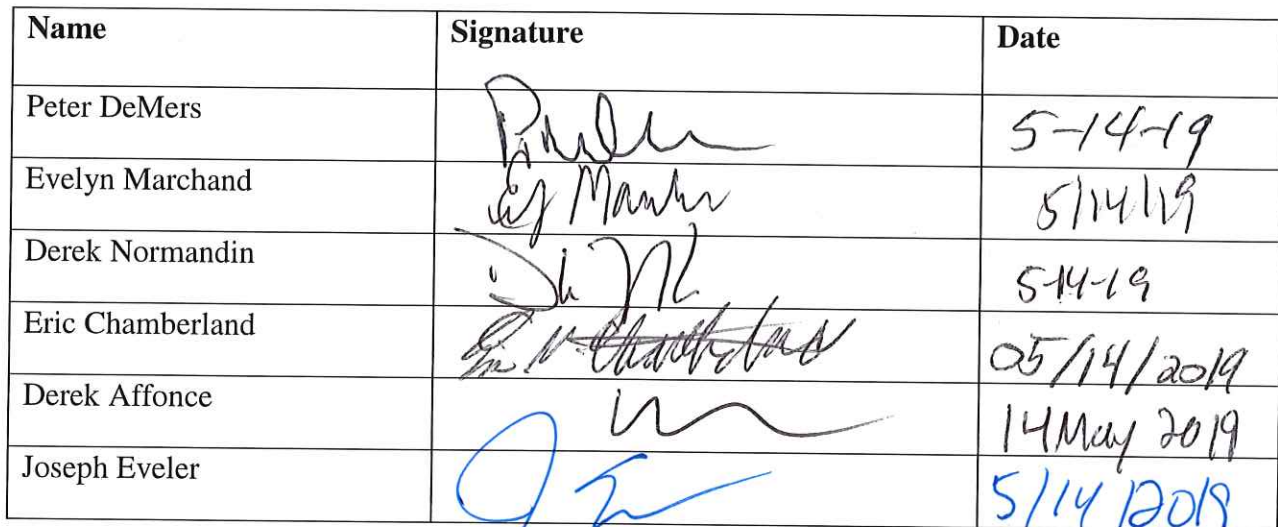 Name Signature Date
Peter DeMers 5-14-19
Evelyn Marchand 5/14/19
Derek Normandin 5-14-19
Eric Chamberland 05/14/2019
Derek Affonce 14 May 2019
Joseph Eveler 5/14/2019